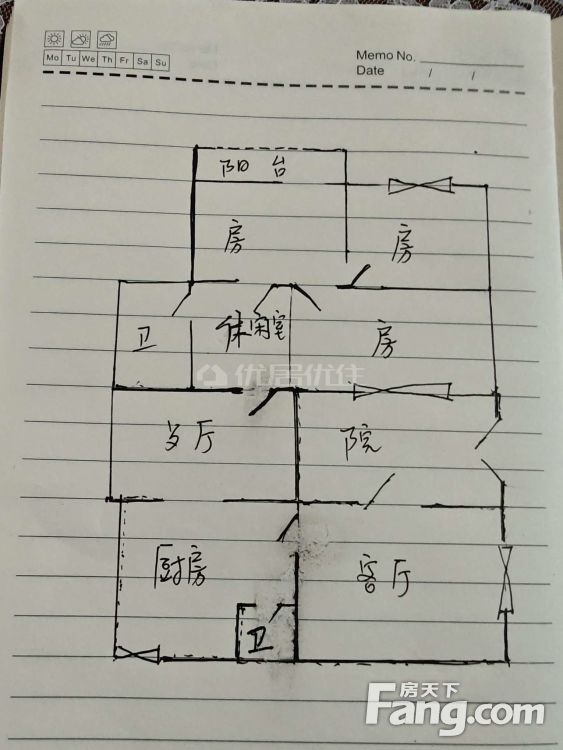 Memo No.
Mo Tu We Th Fr Sa Su
Date / /
阳台
房
房
卫
休闲室
房
优居优住
岁厅
院
厨房
客厅
卫
房天下
Fang.com